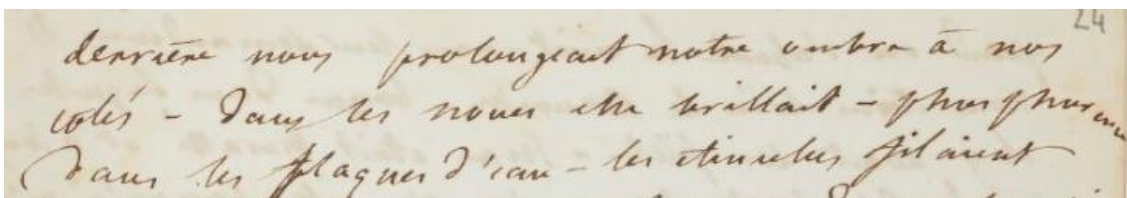 24
derrière nous prolongeant notre ombre à nos
cotés - dans les noues elle brillait - phosphorence
dans les flaques d'eau - les étincelles filaient